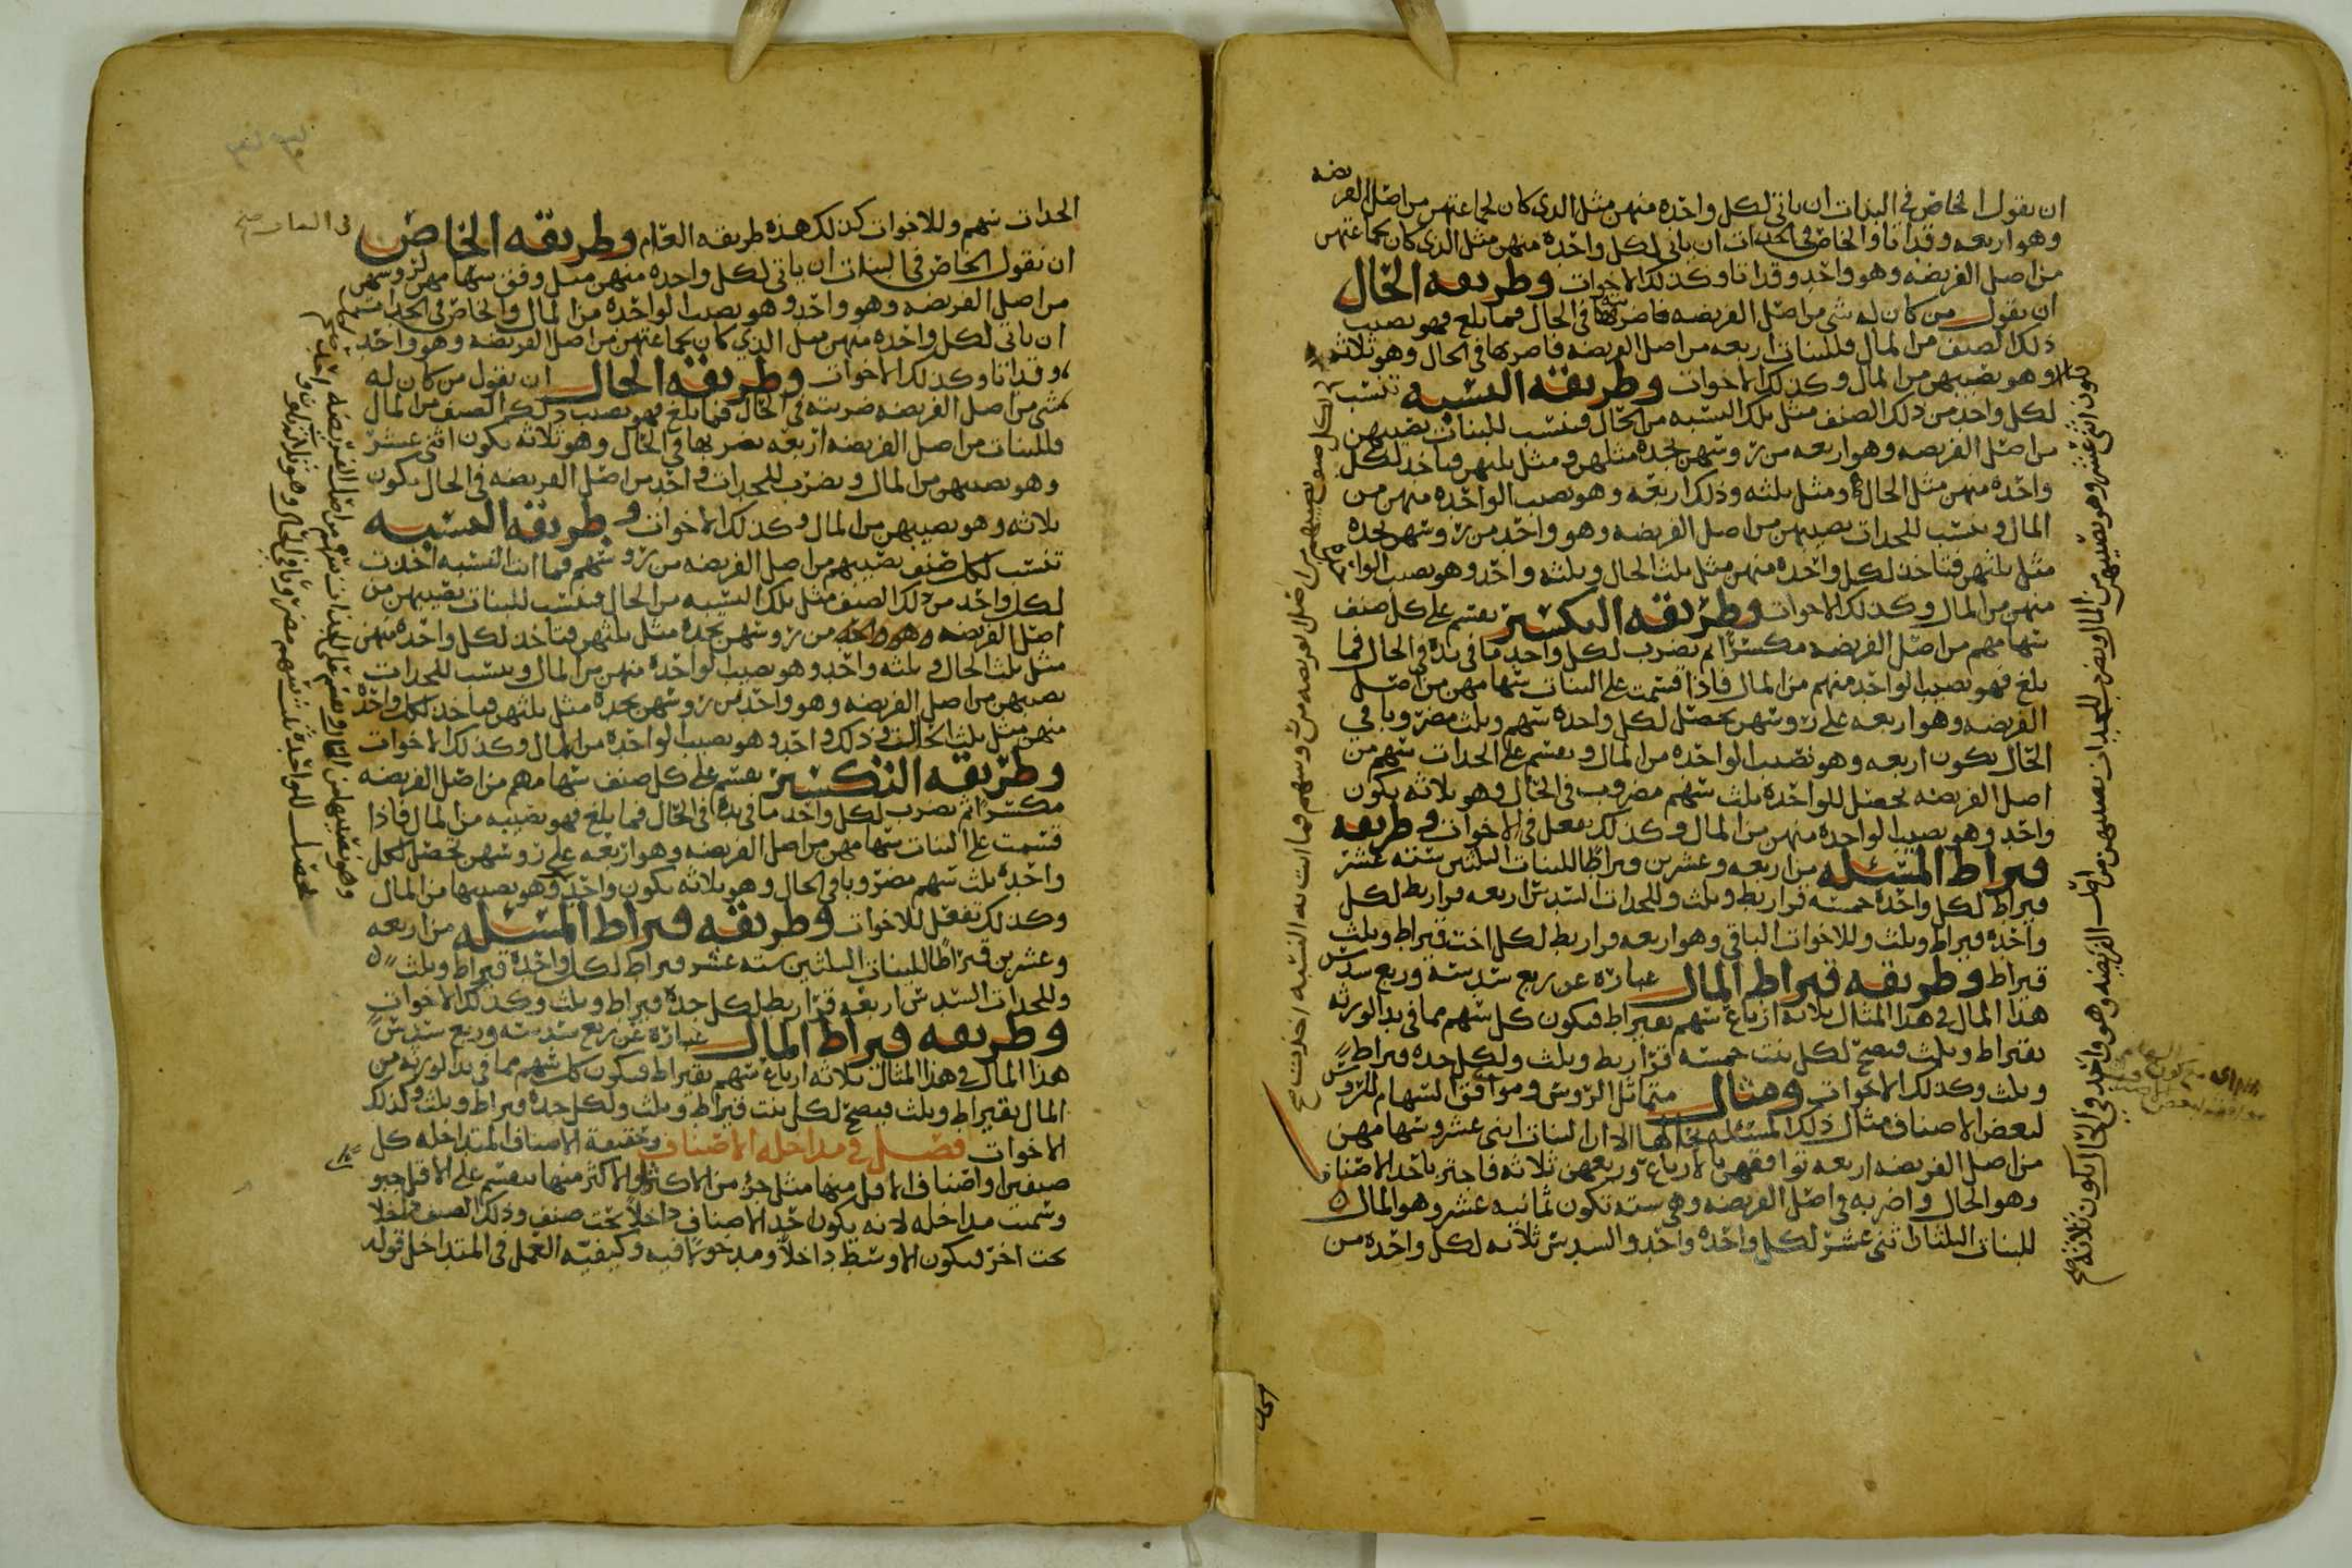 ان يقول الخاص في البنات ان ياتي لكل واحده منهن مثل الذي كان لجماعتهن من اصل الفريضه
وهو اربعه وقد اتا والخاص في الجدات ان ياتي لكل واحده منهن مثل الذي كان لجماعتهن
من اصل الفريضه وهو واحد وقد اتا وكذلك الاخوات وطريقه الحال
ان يقول من كان له شي من اصل الفريضه فاضربه في الحال فما بلغ فهو نصيب
ذلك الصنف من المال فللبنات اربعه من اصل الفريضه فاضربها في الحال وهو ثلاثه
وهو نصيبهن من المال وكذلك الاخوات وطريقه النسبه تنسب
لكل واحد من ذلك الصنف مثل تلك النسبه من الحال فتنسب للبنات نصيبهن
من اصل الفريضه وهو اربعه من روسهن تجده مثلهن ومثل ثلثهن فتاخذ لكل
واحده منهن مثل الحال ومثل ثلثه وذلك اربعه وهو نصيب الواحده منهن من
المال وتنسب للجدات نصيبهن من اصل الفريضه وهو واحد من روسهن تجده
مثل ثلثهن فتاخذ لكل واحده منهن مثل ثلث الحال وثلثه واحد وهو نصيب الواحده
منهن من المال وكذلك الاخوات وطريقه التكسير يقسم على كل صنف
سهامهم من اصل الفريضه مكسرا ثم يضرب لكل واحد ما في يده في الحال فما
بلغ فهو نصيب الواحد منهم من المال فاذا قسمت على البنات سهامهن من اصل
الفريضه وهو اربعه على روسهن تحصل لكل واحده سهم وثلث مضروبا في
الحال يكون اربعه وهو نصيب الواحده من المال ويقسم على الجدات سهم من
اصل الفريضه يحصل للواحده ثلث سهم مضروب في الحال وهو ثلاثه يكون
واحد وهو نصيب الواحده منهن من المال وكذلك تفعل في الاخوات وطريقه
قيراط المسئله من اربعه وعشرين قيراطا للبنات الثلثين سته عشر
قيراط لكل واحده خمسه قراريط وثلث وللجدات السدس اربعه قراريط لكل
واحده قيراط وثلث وللاخوات الباقي وهو اربعه قراريط لكل اخت قيراط وثلث
قيراط وطريقه قيراط المال عباره عن ربع سدسه وربع سدس
هذا المال في هذا المثال ثلاثه ارباع سهم بقيراط فيكون كل سهم مما في يد الورثه
بقيراط وثلث فيصح لكل بنت خمسه قراريط وثلث ولكل جده قيراط
وثلث وكذلك الاخوات ومثال متماثل الروس وموافق السهام للروس
لبعض الاصناف مثال ذلك المسئله بحالها الا ان البنات اثني عشر وسهامهن
من اصل الفريضه اربعه توافقهن بالارباع وربعهن ثلاثه فاجتز باحد الاصناف
وهو الحال واضربه في اصل الفريضه وهي سته تكون ثمانيه عشر وهو المال
للبنات الثلثان اثني عشر لكل واحده واحد والسدس ثلاثه لكل واحده من
يكون اثني عشر وهو نصيبهن من المال ويضرب للجدات نصيبهن من اصل الفريضه وهو واحد في الحال يكون ثلاثه صح
لكل صنف نصيبهم من اصل الفريضه من روسهم فما اتت به النسبه اخذت صح
الجدات سهم وللاخوات كذلك هذه طريقه العام وطريقه الخاص
في البنات صح
ان تقول الخاص في البنات ان ياتي لكل واحده منهن مثل وفق سهامهن لروسهن
من اصل الفريضه وهو واحد وهو نصيب الواحده من المال والخاص في الجدات
ان ياتي لكل واحده منهن مثل الذي كان لجماعتهن من اصل الفريضه وهو واحد
وقد اتا وكذلك الاخوات وطريقه الحال ان يقول من كان له
شي من اصل الفريضه ضربته في الحال فما بلغ فهو نصيب ذلك الصنف من المال
فللبنات من اصل الفريضه اربعه نضربها في الحال وهو ثلاثه يكون اثني عشر
وهو نصيبهن من المال ويضرب للجدات واحد من اصل الفريضه في الحال يكون
ثلاثه وهو نصيبهن من المال وكذلك الاخوات وطريقه النسبه
تنسب لكل صنف نصيبهم من اصل الفريضه من روسهم فما اتت النسبه اخذت
لكل واحد من ذلك الصنف مثل تلك النسبه من الحال فتنسب للبنات نصيبهن من
اصل الفريضه وهو واحد من روسهن تجده مثل ثلثهن فتاخذ لكل واحده منهن
مثل ثلث الحال وثلثه واحد وهو نصيب الواحده منهن من المال وينسب للجدات
نصيبهن من اصل الفريضه وهو واحد من روسهن تجده مثل ثلثهن فتاخذ لكل واحده
منهن مثل ثلث الحال وذلك واحد وهو نصيب الواحده من المال وكذلك الاخوات
وطريقه التكسير يقسم على كل صنف سهامهم من اصل الفريضه
مكسرا ثم يضرب لكل واحد ما في يده في الحال فما بلغ فهو نصيبه من المال فاذا
قسمت على البنات سهامهن من اصل الفريضه وهو اربعه على روسهن تحصل لكل
واحده ثلث سهم مضروبا في الحال وهو ثلاثه يكون واحد وهو نصيبها من المال
وكذلك تفعل للاخوات وطريقه قيراط المسئله من اربعه
وعشرين قيراطا للبنات الثلثين سته عشر قيراط لكل واحده قيراط وثلث
وللجدات السدس اربعه قراريط لكل جده قيراط وثلث وكذلك الاخوات
وطريقه قيراط المال عباره عن ربع سدسه وربع سدس
هذا المال في هذا المثال ثلاثه ارباع سهم بقيراط فيكون كل سهم مما في يد الورثه من
المال بقيراط وثلث فيصح لكل بنت قيراط وثلث ولكل جده قيراط وثلث وكذلك
الاخوات فصل في مداخله الاصناف وحقيقة الاصناف المتداخله كل
صنفين او اصناف الاقل منها مثل جزؤ من الاكثر او الاكثر منها ينقسم على الاقل جبو
وسميت مداخله لانه يكون احد الاصناف داخلا تحت صنف وذلك الصنف داخلا
تحت اخر فيكون الاوسط داخلا ومدخولا فيه وكيفيه العمل في المتداخل قوله